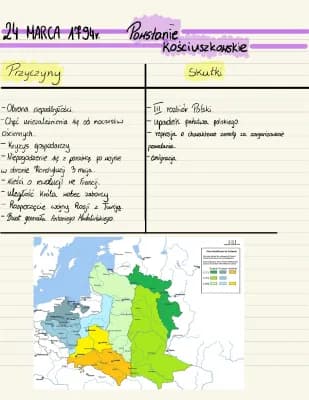 24 MARCA 1794r. Powstanie
Kościuszkowskie
Przyczyny
Skutki
- Obrona niepodległości
- Chęć uniezależnienia się od mocarstw
ościennych.
- Kryzys gospodarczy
- Niepogodzenie się z porażką po wojnie
w obronie Konstytucji 3 maja.
- Wieści o rewolucji we Francji.
- uległość króla wobec zaborcy
- Rozpoczęcie wojny Rosji z Turcją.
- Bunt generała Antoniego Madalińskiego
- III rozbiór Polski
- upadek państwa polskiego
- represje o charakterze zemsty za zorganizowanie
powstania.
- emigracja.